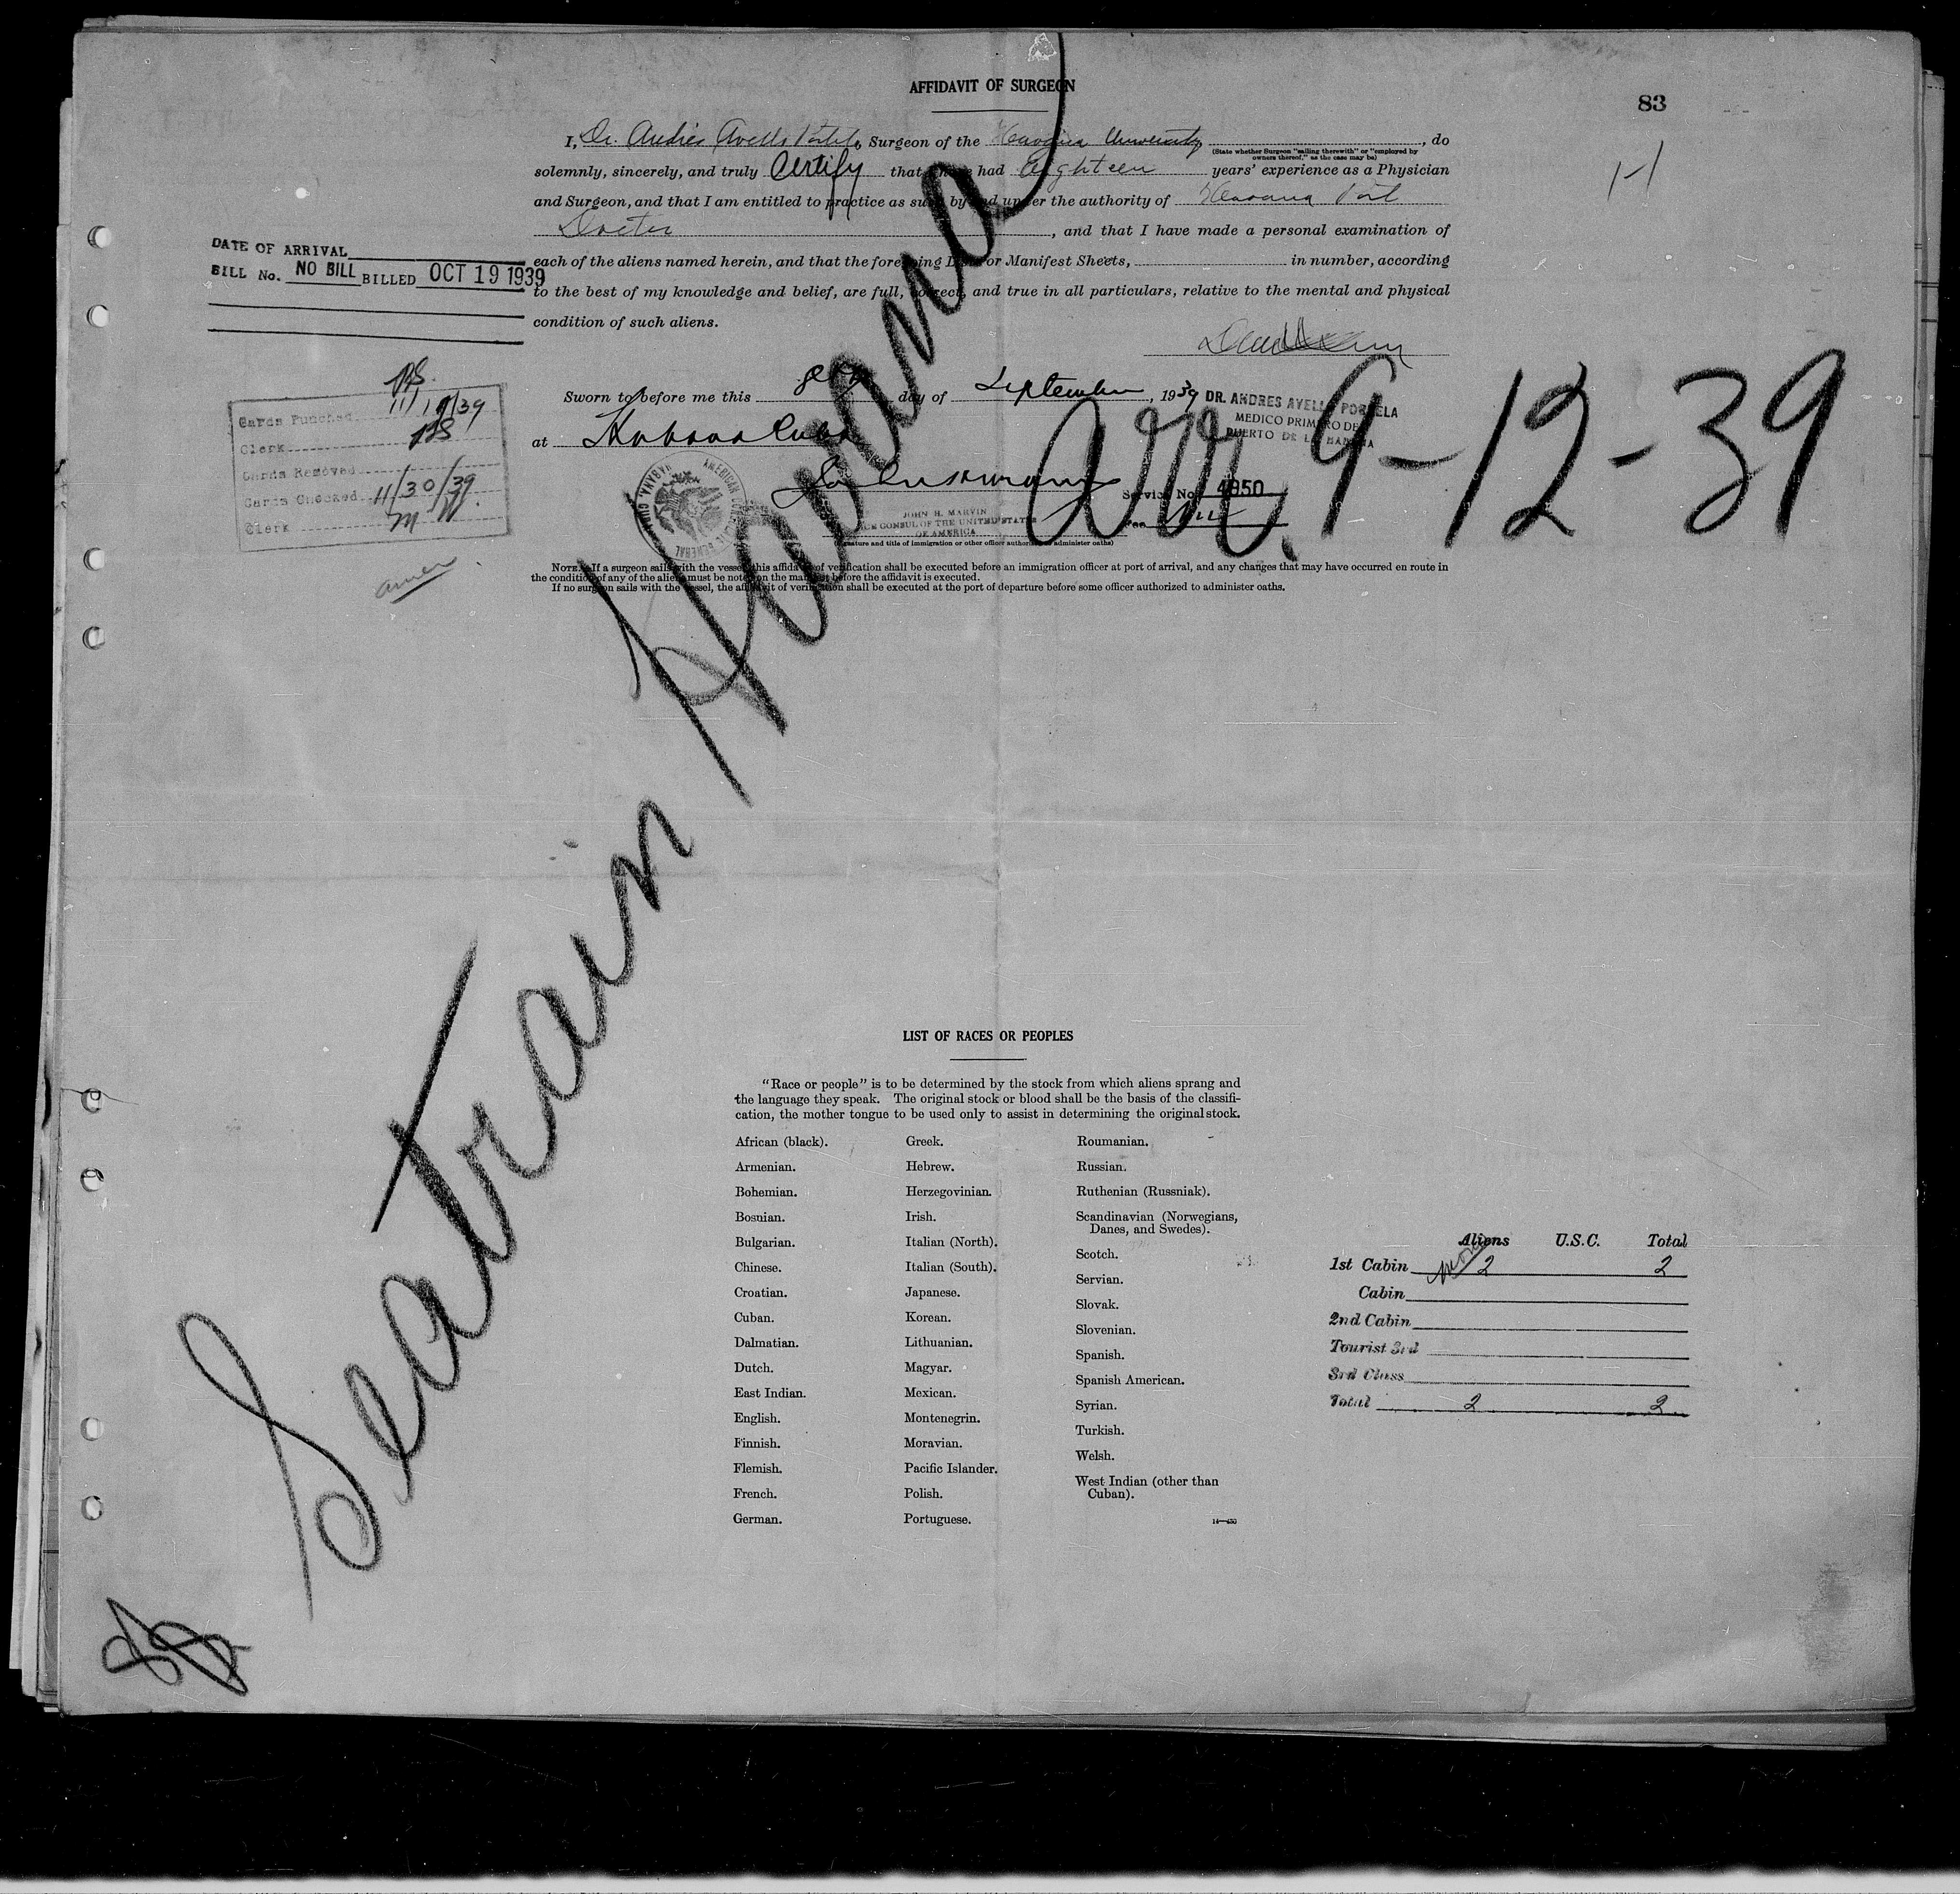 AFFIDAVIT OF SURGEON
83
I, Dr. Andres Avello Portela, Surgeon of the Havana University, do
(State whether Surgeon "sailing therewith" or "employed by
owners thereof," as the case may be)
solemnly, sincerely, and truly Certify that I have had Eighteen years' experience as a Physician
and Surgeon, and that I am entitled to practice as such by and under the authority of Havana Port
Doctor, and that I have made a personal examination of
each of the aliens named herein, and that the foregoing Lists or Manifest Sheets, in number, according
to the best of my knowledge and belief, are full, correct, and true in all particulars, relative to the mental and physical
condition of such aliens.
DATE OF ARRIVAL
BILL No. NO BILL BILLED OCT 19 1939
Cards Punched 11/17/39
Clerk
Cards Removed
Cards Checked 11/30/39
Clerk M W.
Sworn to before me this 8th day of September, 1939
at Habana Cuba
DR. ANDRES AVELLO PORTELA
MEDICO PRIMERO DEL
PUERTO DE LA HABANA
AMERICAN CONSULATE GENERAL
HABANA, CUBA
JOHN H. MARVIN
VICE CONSUL OF THE UNITED STATES
OF AMERICA
Service No. 4950
Fee
(Signature and title of immigration or other officer authorized to administer oaths)
9-12-39
NOTE.—If a surgeon sails with the vessel, this affidavit of verification shall be executed before an immigration officer at port of arrival, and any changes that may have occurred en route in
the condition of any of the aliens must be noted on the manifest before the affidavit is executed.
If no surgeon sails with the vessel, the affidavit of verification shall be executed at the port of departure before some officer authorized to administer oaths.
Seatrain Havana
LIST OF RACES OR PEOPLES
"Race or people" is to be determined by the stock from which aliens sprang and
the language they speak. The original stock or blood shall be the basis of the classifi-
cation, the mother tongue to be used only to assist in determining the original stock.
African (black).
Armenian.
Bohemian.
Bosnian.
Bulgarian.
Chinese.
Croatian.
Cuban.
Dalmatian.
Dutch.
East Indian.
English.
Finnish.
Flemish.
French.
German.
Greek.
Hebrew.
Herzegovinian.
Irish.
Italian (North).
Italian (South).
Japanese.
Korean.
Lithuanian.
Magyar.
Mexican.
Montenegrin.
Moravian.
Pacific Islander.
Polish.
Portuguese.
Roumanian.
Russian.
Ruthenian (Russniak).
Scandinavian (Norwegians,
Danes, and Swedes).
Scotch.
Servian.
Slovak.
Slovenian.
Spanish.
Spanish American.
Syrian.
Turkish.
Welsh.
West Indian (other than
Cuban).
14—430
Aliens U.S.C. Total
1st Cabin 2 2
Cabin
2nd Cabin
Tourist 3rd
3rd Class
Total 2 2